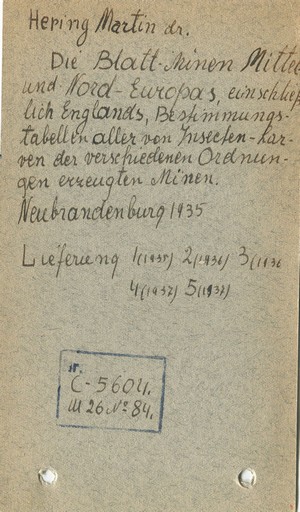 Hering Martin dr.
Die Blatt-Minen Mittel
und Nord-Europas, einschließ
lich Englands, Bestimmungs-
tabellen aller von Insecten-Lar-
ven der verschiedenen Ordnun-
gen erzeugten Minen.
Neubrandenburg 1935
Lieferung 1(1935) 2(1936) 3(1936
4(1937) 5(1937)
C-5604.
III 26 No 84.